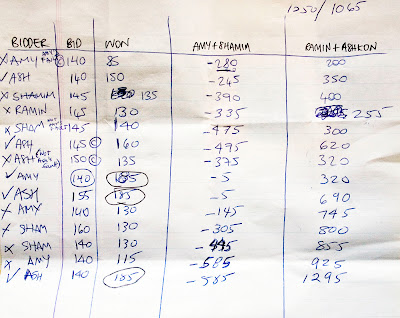 1250/1065
BIDDER BID WON AMY+SHAMIM RAMIN+ASHKON
X AMY © 140 85 -280 200
✓ ASH 140 150 -245 350
X SHAMIM 145 135 -390 400
X RAMIN 145 130 -335 255
X SHAM 145 140 -475 300
✓ ASH 145 © 160 -495 620
X ASH 150 © 135 -375 320
✓ AMY 140 185 -5 320
✓ ASH 155 185 -5 690
X AMY 140 130 -145 745
X SHAM 160 130 -305 800
X SHAM 140 130 - 855
X AMY 140 115 -585 925
✓ ASH 140 185 -585 1295